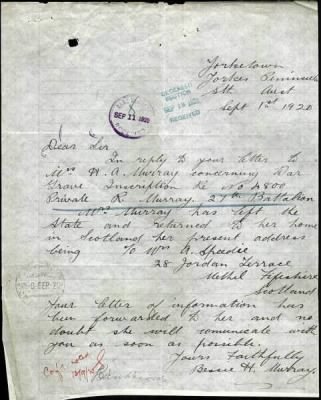 Yorketown
Yorkes Peninsula
Sth Aust
Sept 1st 1920
SEP 11 1920
RECEIVED
Dear Sir
In reply to your letter to
Mrs H A. Murray concerning War
Grave Inscription Re No 4800
Private R. Murray, 27th Battalion
Mrs Murray has left the
State and returned to her home
in Scotland her present address
being C/o Mrs A. Speedie
28 Jordan Terrace
Methel Fifeshire
Scotland
Your letter of information has
been forwarded to her and no
doubt she will comunicate with
you as soon as possible.
Yours Faithfully
Bessie H. Murray.